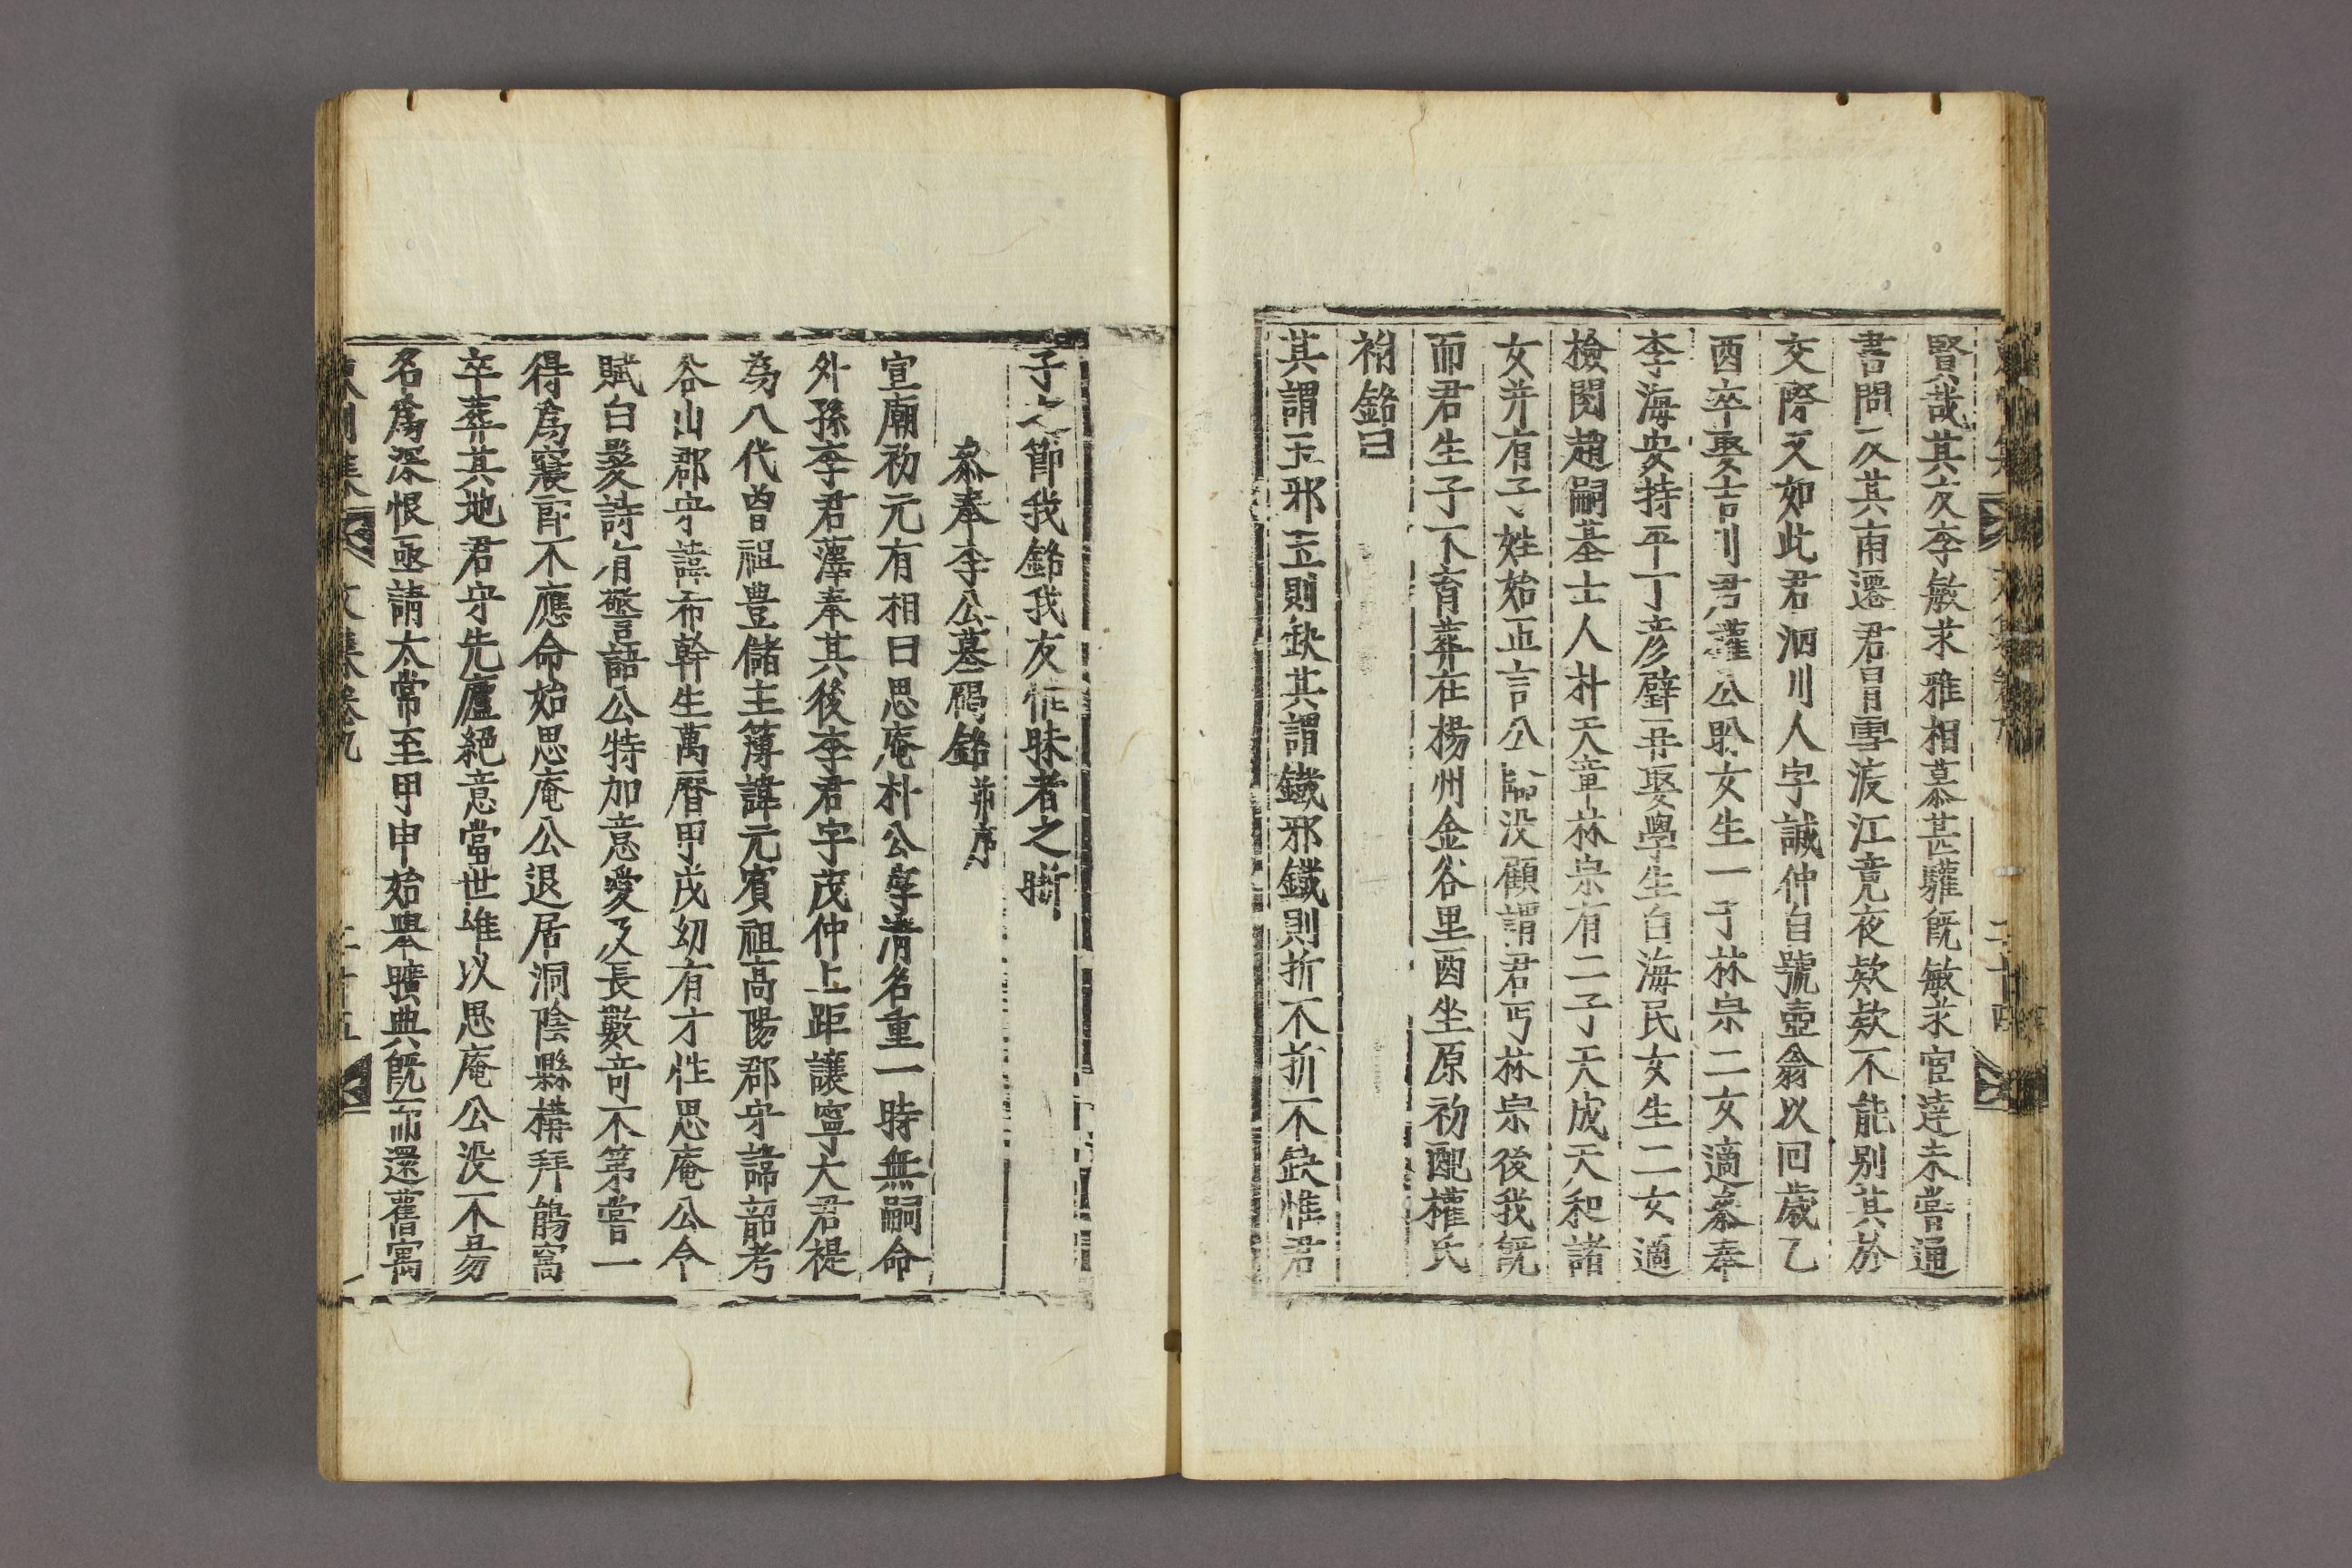 賢哉其友李敏求雅相慕甚驩旣敏求宦達未嘗通
書問及其南遷君冒雪渡江竟夜欵欵不能別其於
交際又如此君泗川人字誠仲自號壺翁以回歲乙
酉卒娶吉川君權公盼女生一子林宗二女適叅奉
李海安持平丁彦璧再娶學生白海民女生二女適
檢閱趙嗣基士人朴天章林宗有二子天成天和諸
女并有子姓始正言公臨没顧謂君丐林宗後我旣
而君生子不育葬在楊州金谷里酉坐原初配權氏
祔銘曰
其謂玉邪玉則缺其謂鐵邪鐵則折不折不缺惟君
二十四
子之節我銘我友怍昧者之晣
叅奉李公墓碣銘并序
宣廟初元有相曰思庵朴公淳清名重一時無嗣命
外孫李君澤奉其後李君字茂仲上距讓寧大君禔
為八代曾祖豊儲主簿諱元賓祖高陽郡守諱韶考
谷山郡守諱希幹生萬曆甲戌幼有才性思庵公令
賦白晝詩有警語公特加意愛及長數竒不第嘗一
得爲寢郞不應命始思庵公退居洞陰縣構拜鵑窩
卒葬其地君守先廬絕意當世唯以思庵公没不易
名爲深恨亟請太常至甲申始舉曠典旣而還舊寓
東州集 文集卷九 二十五